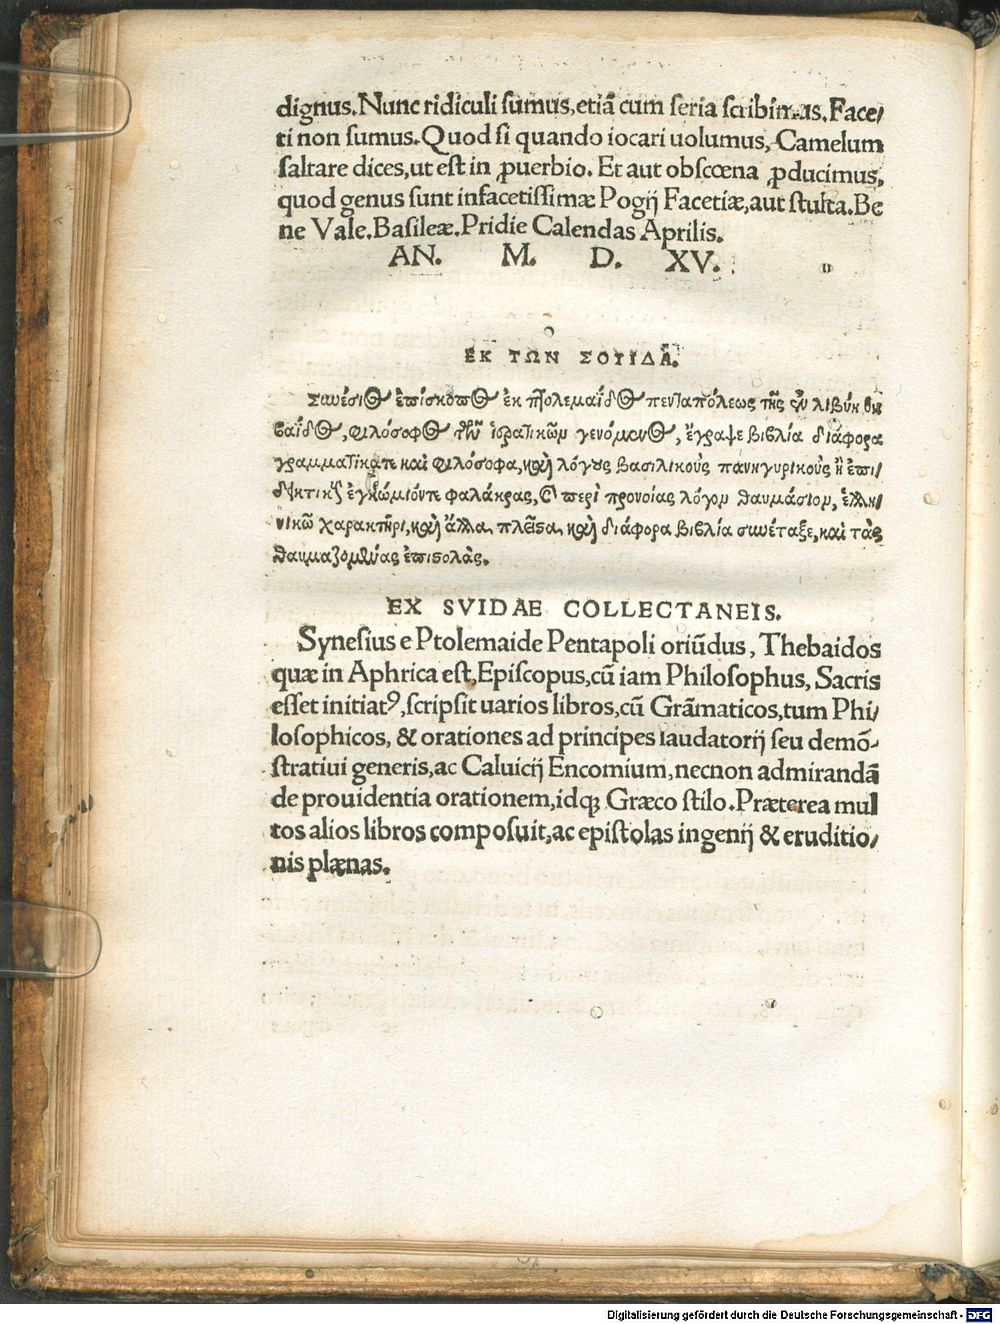 dignus. Nunc ridiculi sumus, etiã cum seria scribimus. Face/
ti non sumus. Quod si quando iocari uolumus, Camelum
saltare dices, ut est in ꝓuerbio. Et aut obscœna ꝓducimus,
quod genus sunt infacetissimæ Pogij Facetiæ, aut stulta. Be
ne Vale. Basileæ. Pridie Calendas Aprilis.
AN. M. D. XV.
ΕΚ ΤΩΝ ΣΟΥΙΔΑ.
Συνέσιος ἐπίσκοπος ἐκ πτολεμαΐδος πενταπόλεως τῆς ἐν λιβύῃ θη
βαΐδος, φιλόσοφος τῶν ἱερατικῶν γενόμενος, ἔγραψε βιβλία διάφορα
γραμματικάτε καὶ φιλόσοφα, καὶ λόγους βασιλικοὺς πανηγυρικοὺς ἢ ἐπι/
δεικτικοὺς ἐγκώμιόντε φαλάκρας, καὶ περὶ προνοίας λόγον θαυμάσιον, ἑλλη/
νικῶ χαρακτῆρι, καὶ ἄλλα πλεῖστα, καὶ διάφορα βιβλία συνέταξε, καὶ τὰς
θαυμαζομένας ἐπιστολάς.
EX SVIDAE COLLECTANEIS.
Synesius e Ptolemaide Pentapoli oriũdus, Thebaidos
quæ in Aphrica est, Episcopus, cũ iam Philosophus, Sacris
esset initiatꝰ, scripsit uarios libros, cũ Grãmaticos, tum Phi/
losophicos, & orationes ad principes laudatorij seu demõ/
stratiui generis, ac Caluicij Encomium, necnon admirandã
de prouidentia orationem, idq; Græco stilo. Præterea mul
tos alios libros composuit, ac epistolas ingenij & eruditio/
nis plænas.
Digitalisierung gefördert durch die Deutsche Forschungsgemeinschaft - DFG